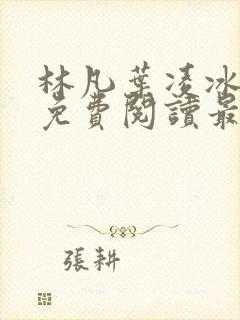 林凡葉凌冰
免費閱讀最
張耕